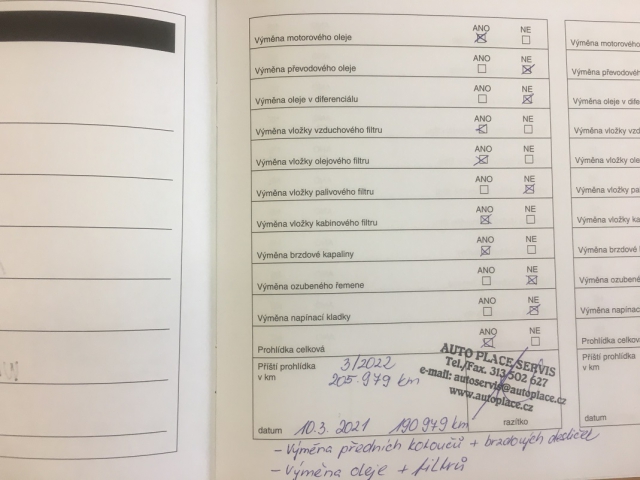 ANO NE
Výměna motorového oleje
ANO NE
Výměna převodového oleje
ANO NE
Výměna oleje v diferenciálu
ANO NE
Výměna vložky vzduchového filtru
ANO NE
Výměna vložky olejového filtru
ANO NE
Výměna vložky palivového filtru
ANO NE
Výměna vložky kabinového filtru
ANO NE
Výměna brzdové kapaliny
ANO NE
Výměna ozubeného řemene
ANO NE
Výměna napínací kladky
ANO NE
Prohlídka celková
Příští prohlídka 3/2022
v km 205 979 km
AUTO PLACE SERVIS
Tel./Fax. 313 502 627
e-mail: autoservis@autoplace.cz
www.autoplace.cz
datum 10.3. 2021 190 979 km razítko
- Výměna předních kotoučů + brzdových destiček
- Výměna oleje + filtrů
Výměna motorového
Výměna převodovéh
Výměna oleje v dife
Výměna vložky vzd
Výměna vložky ole
Výměna vložky pa
Výměna vložky ka
Výměna brzdové
Výměna ozubené
Výměna napínac
Prohlídka celkov
Příští prohlídka
v km
datum